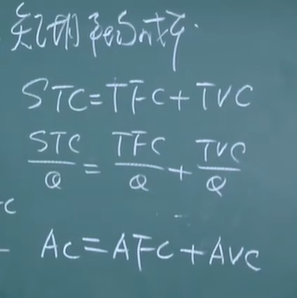 短期平均成本.
STC=TFC+TVC
STC/Q = TFC/Q + TVC/Q
AC=AFC+AVC